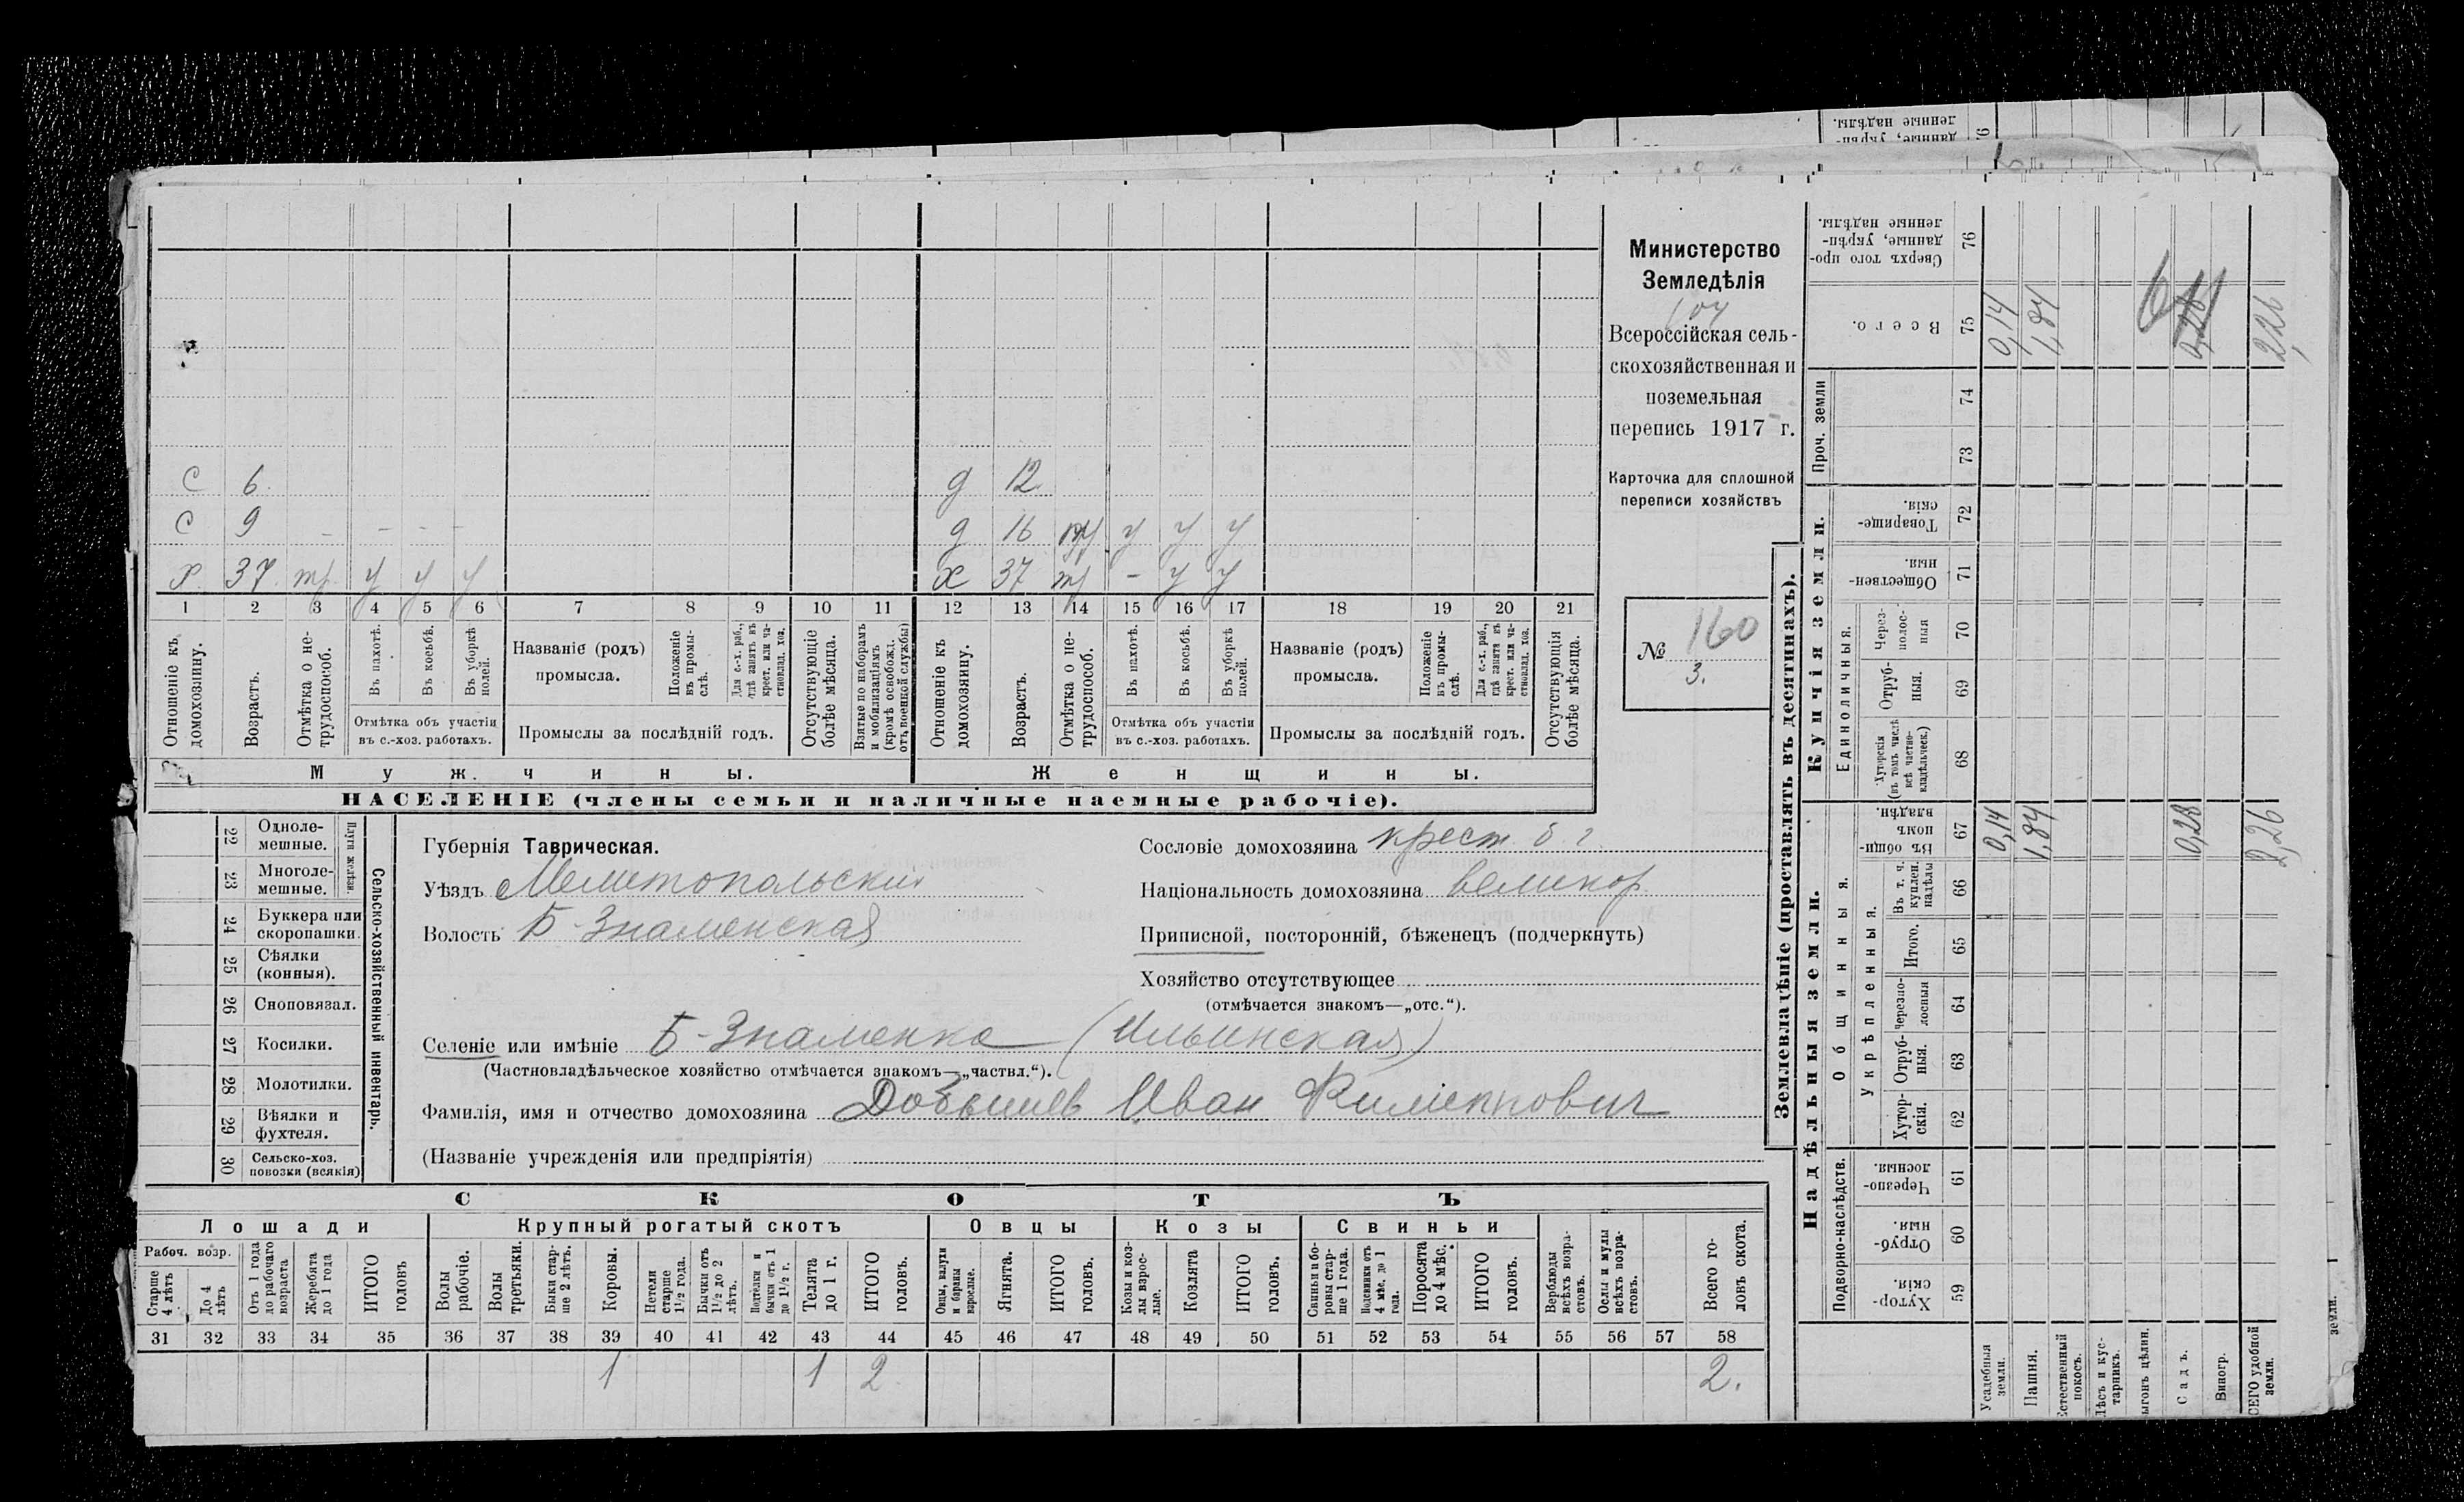 Министерство
Земледѣлія
104
Всероссійская сель-
скохозяйственная и
поземельная
перепись 1917 г.
Карточка для сплошной
переписи хозяйствъ
№ 160
3.
С 6. д 12
С 9 - - - - д 16 тр у у у
Х 37 тр у у у Х 37 тр - у у
1 2 3 4 5 6 7 8 9 10 11 12 13 14 15 16 17 18 19 20 21
Отношеніе къ домохозяину.
Возрастъ.
Отмѣтка о не-трудоспособ.
Въ пахотѣ.
Въ косьбѣ.
Въ уборкѣ полей.
Отмѣтка объ участіи
въ с.-хоз. работахъ.
Названіе (родъ)
промысла.
Положеніе въ промы-слѣ.
Для с.-х. раб., гдѣ занятъ въ крест. или ча-стновлад. хоз.
Промыслы за послѣдній годъ.
Отсутствующіе болѣе мѣсяца.
Взятые по наборамъ и мобилизаціямъ (кромѣ освобожд. отъ военной службы)
Отношеніе къ домохозяину.
Возрастъ.
Отмѣтка о не-трудоспособ.
Въ пахотѣ.
Въ косьбѣ.
Въ уборкѣ полей.
Отмѣтка объ участіи
въ с.-хоз. работахъ.
Названіе (родъ)
промысла.
Положеніе въ промы-слѣ.
Для с.-х. раб., гдѣ занята въ крест. или ча-стновлад. хоз.
Промыслы за послѣдній годъ.
Отсутствующія болѣе мѣсяца.
Мужчины. Женщины.
НАСЕЛЕНІЕ (члены семьи и наличные наемные рабочіе).
22 Одноле-мешные.
23 Многоле-мешные.
Плуги желѣзн.
24 Буккера или скоропашки.
25 Сѣялки (конныя).
26 Сноповязал.
27 Косилки.
28 Молотилки.
29 Вѣялки и фухтеля.
30 Сельско-хоз. повозки (всякія)
Сельско-хозяйственный инвентарь.
Губернія Таврическая.
Уѣздъ Мелитопольский
Волость Б-Знаменская
Сословіе домохозяина крест. б. г.
Національность домохозяина великор.
Приписной, посторонній, бѣженецъ (подчеркнуть)
Хозяйство отсутствующее
(отмѣчается знакомъ—„отс.“).
Селеніе или имѣніе Б-Знаменка (Ильинская)
(Частновладѣльческое хозяйство отмѣчается знакомъ—„частвл.“).
Фамилія, имя и отчество домохозяина Иван Филиппович
(Названіе учрежденія или предпріятія)
СКОТЪ
Лошади Крупный рогатый скотъ Овцы Козы Свиньи
Рабоч. возр.
Старше 4 лѣтъ
До 4 лѣтъ
Отъ 1 года до рабочаго возраста
Жеребята до 1 года
ИТОГО головъ
Волы рабочіе.
Волы третьяки.
Быки стар-ше 2 лѣтъ.
Коровы.
Нетели старше 1½ года.
Бычки отъ 1½ до 2 лѣтъ.
Подтелки и бычки отъ 1 до 1½ г.
Телята до 1 г.
ИТОГО головъ.
Овцы, валухи и бараны взрослые.
Ягнята.
ИТОГО головъ.
Козы и коз-лы взрос-лые.
Козлята
ИТОГО головъ.
Свиньи и бо-ровы стар-ше 1 года.
Подсвинки отъ 4 мѣс. до 1 года.
Поросята до 4 мѣс.
ИТОГО головъ.
Верблюды всѣхъ возра-стовъ.
Ослы и мулы всѣхъ возра-стовъ.
Всего го-ловъ скота.
31 32 33 34 35 36 37 38 39 40 41 42 43 44 45 46 47 48 49 50 51 52 53 54 55 56 57 58
1 1 2 2.
Землевладѣніе (проставлять въ десятинахъ).
Надѣльныя земли. Купчія земли. Проч. земли
Подворно-наслѣдств.
Общинныя.
Укрѣпленныя.
Единоличныя.
Хутор-скія. 59
Отруб-ныя. 60
Черезпо-лосныя. 61
Хутор-скія. 62
Отруб-ныя. 63
Черезпо-лосныя 64
Итого. 65
Въ т. ч. куплен. надѣлы 66
Въ общи-номъ владѣн. 67
Хуторскія (въ томъ числѣ всѣ частно-владѣльческ.) 68
Отруб-ныя. 69
Через-полос-ныя 70
Обществен-ныя. 71
Товарище-скія. 72
73
74
Всего. 75
Сверхъ того про-данные, укрѣп-ленные надѣлы. 76
данные, укрѣп-
ленные надѣлы.
Усадебныя земли. 0,14 0,14
Пашня. 1,84 1,84
Естественный покосъ.
Лѣсъ и кус-тарникъ.
ыгонъ цѣлин.
Садъ. 0,28 0,28
Виногр.
СЕГО удобной земли. 2,26 2,26
земли.